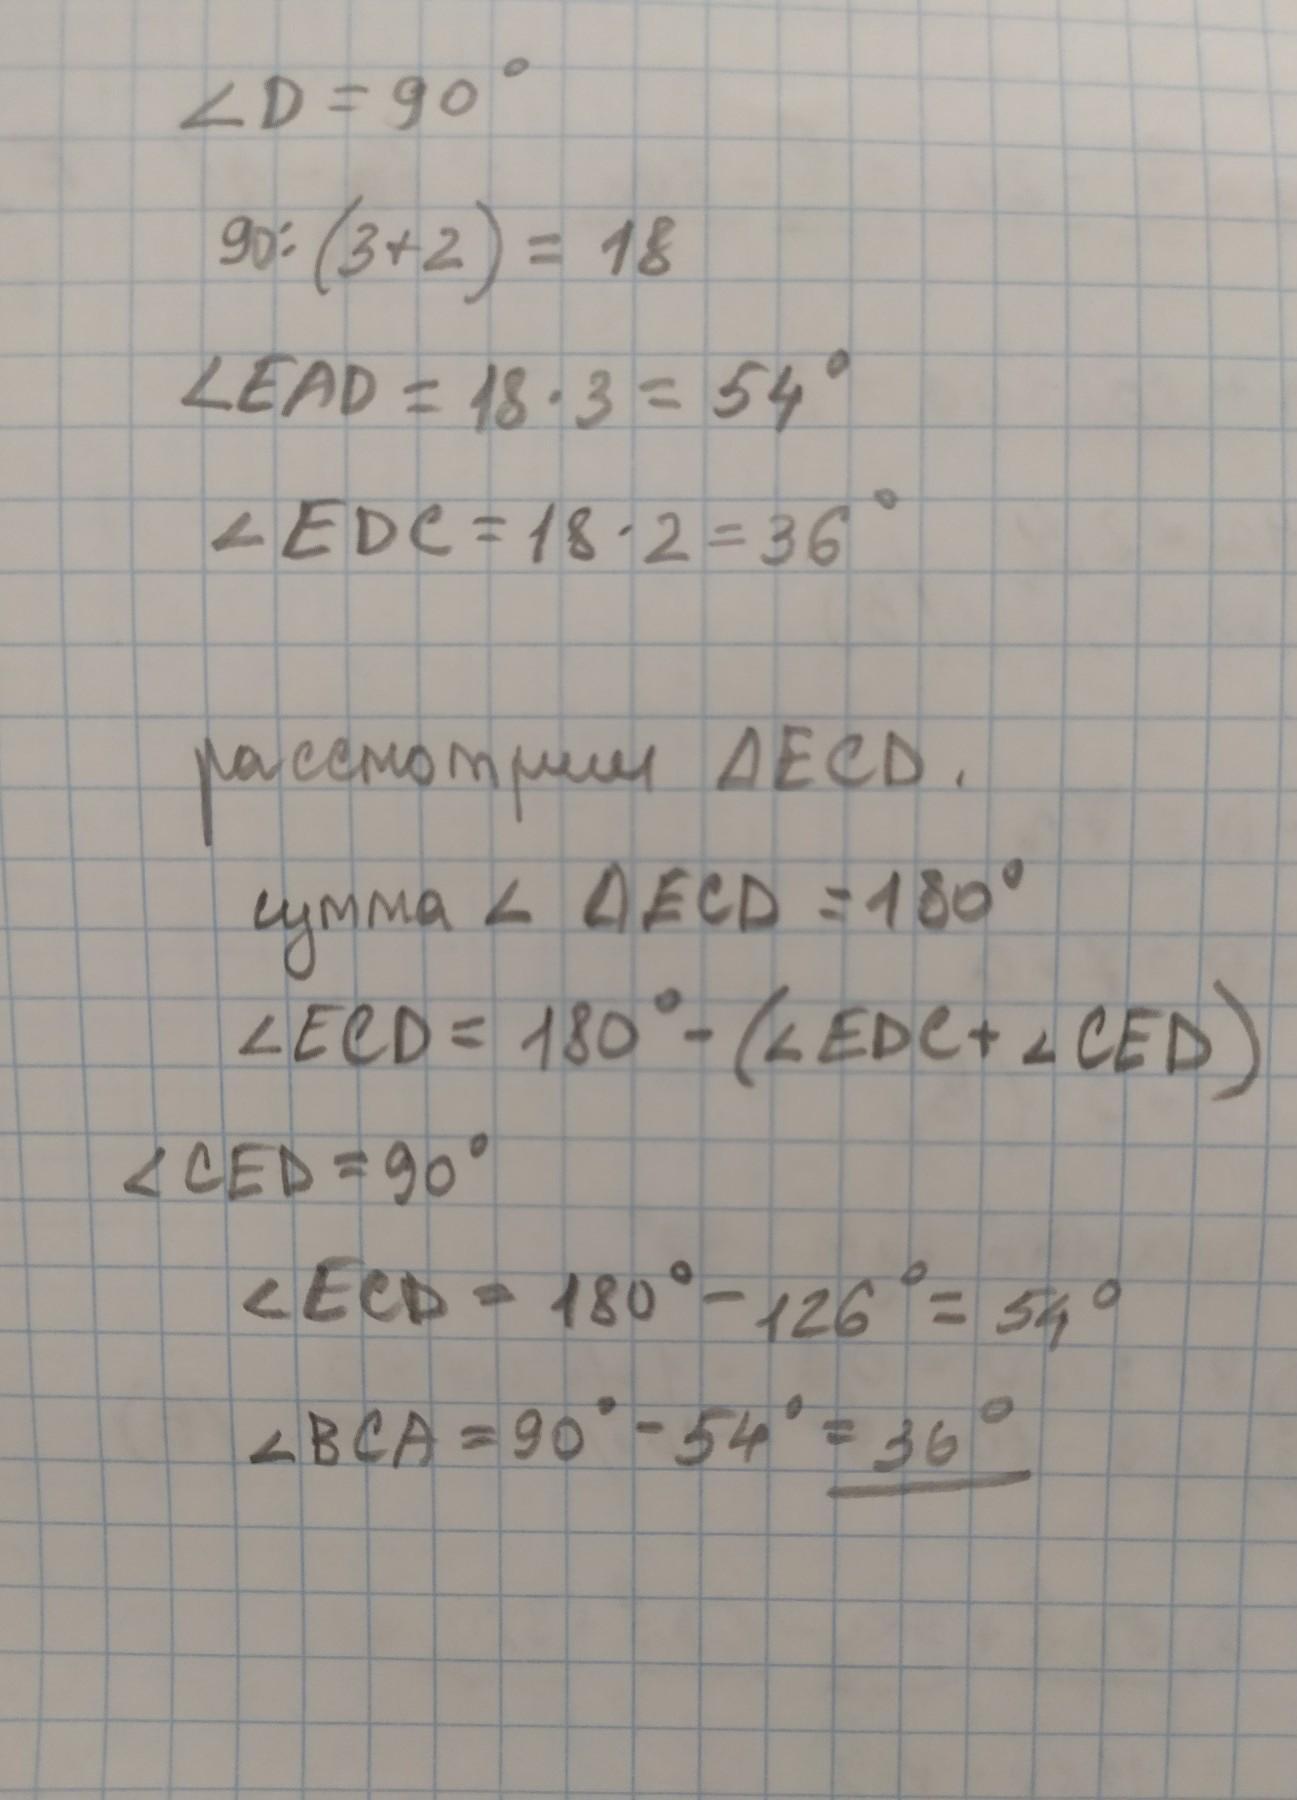 ∠D = 90°
90:(3+2) = 18
∠EAD = 18·3 = 54°
∠EDC = 18·2 = 36°
рассмотрим ΔECD.
сумма ∠ ΔECD = 180°
∠ECD = 180° - (∠EDC + ∠CED)
∠CED = 90°
∠ECD = 180° - 126° = 54°
∠BCA = 90° - 54° = 36°